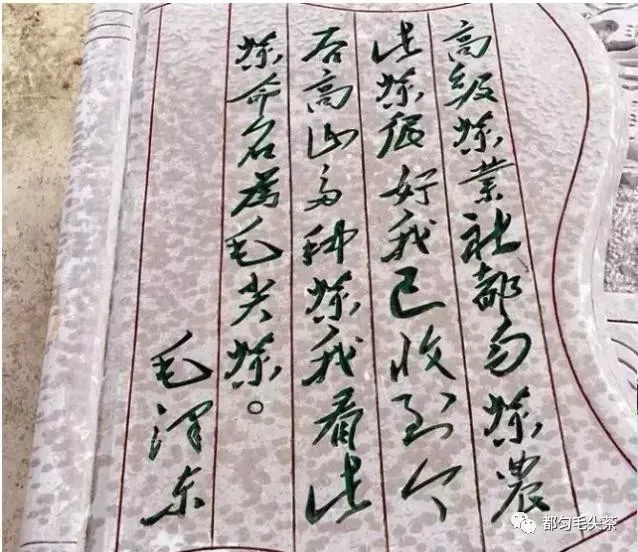 高级茶業社都匀茶農
此茶很好我已收到今
后高山多种茶我看此
茶命名為毛尖茶。
毛澤东
都匀毛尖茶